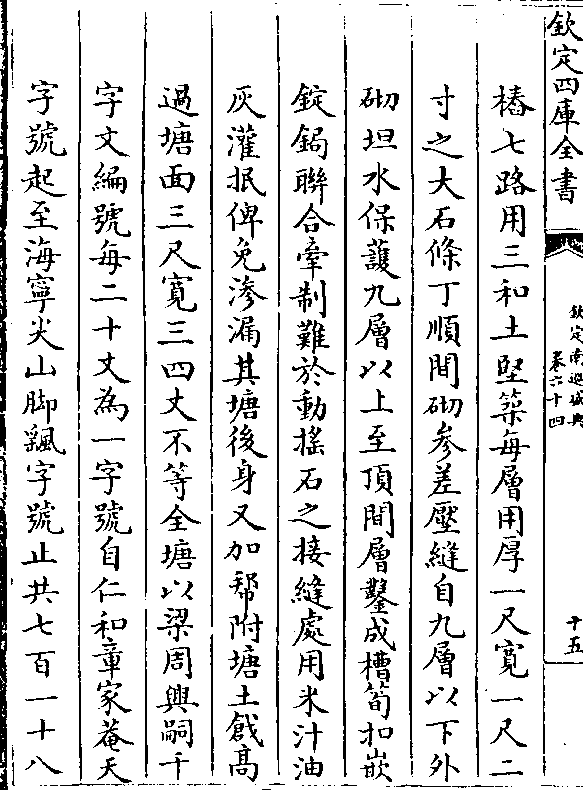 欽定四庫全書
欽定南巡盛典
卷六十四
十五
樁七路用三和土堅築每層用厚一尺寬一尺二
寸之大石條丁順間砌參差壓縫自九層以下外
砌坦水保護九層以上至頂間層鑿成槽筍扣嵌
錠鋦聯合牽制難於動搖石之接縫處用米汁油
灰灌抿俾免滲漏其塘後身又加幇附塘土戧高
過塘面三尺寛三四丈不等全塘以梁周興嗣千
字文編號每二十丈為一字號自仁和章家菴天
字號起至海寧尖山脚飄字號止共七百一十八